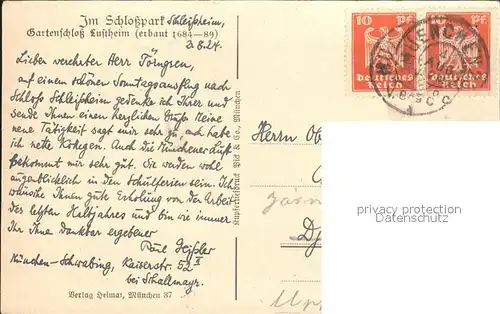 Im Schloßpark Schleißheim,
Gartenschloß Lustheim (erbaut 1684-89)
3.8.24.
Lieber verehrter Herr Törngren,
auf einem schönen Sonntagsausflug nach
Schloss Schleißheim gedenke ich Ihrer und
sende Ihnen einen herzlichen Gruß. Meine
neue Tätigkeit sagt mir sehr zu, auch habe
ich nette Kollegen. Auch die Münchener Luft
bekommt mir sehr gut. Sie werden wohl
augenblicklich in den Schulferien sein. Ich
wünsche Ihnen gute Erholung von der Arbeit
des letzten Halbjahres und bin wie immer
Ihr Ihnen dankbar ergebener
Paul Geißler
München-Schwabing, Kaiserstr. 52 II
bei Schallmayr.
Verlag Heimat, München 37
Kupfertiefdruck Pick & Co., München
10 Pf
Deutsches
Reich
10 Pf
Deutsches
Reich
MUENCHEN
Herrn
privacy protection
Datenschutz